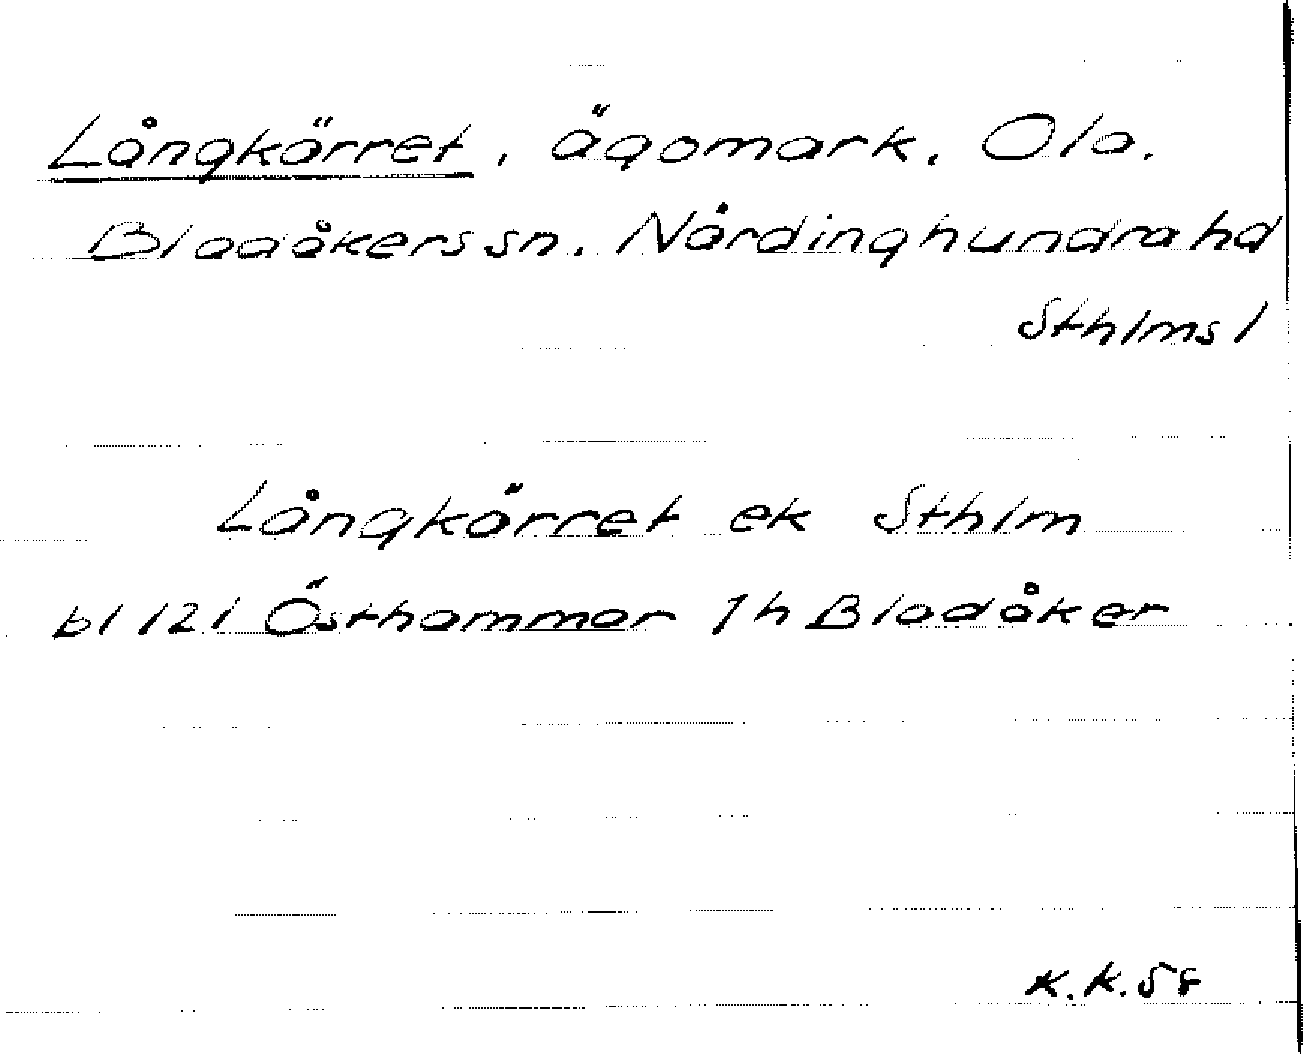 Långkärret, ägomark. Ola.
Bladåkers sn. Närdinghundra hd
Sthlms l
Långkärret ek Sthlm
bl 121 Östhammar Jh Bladåker
K.K. 58